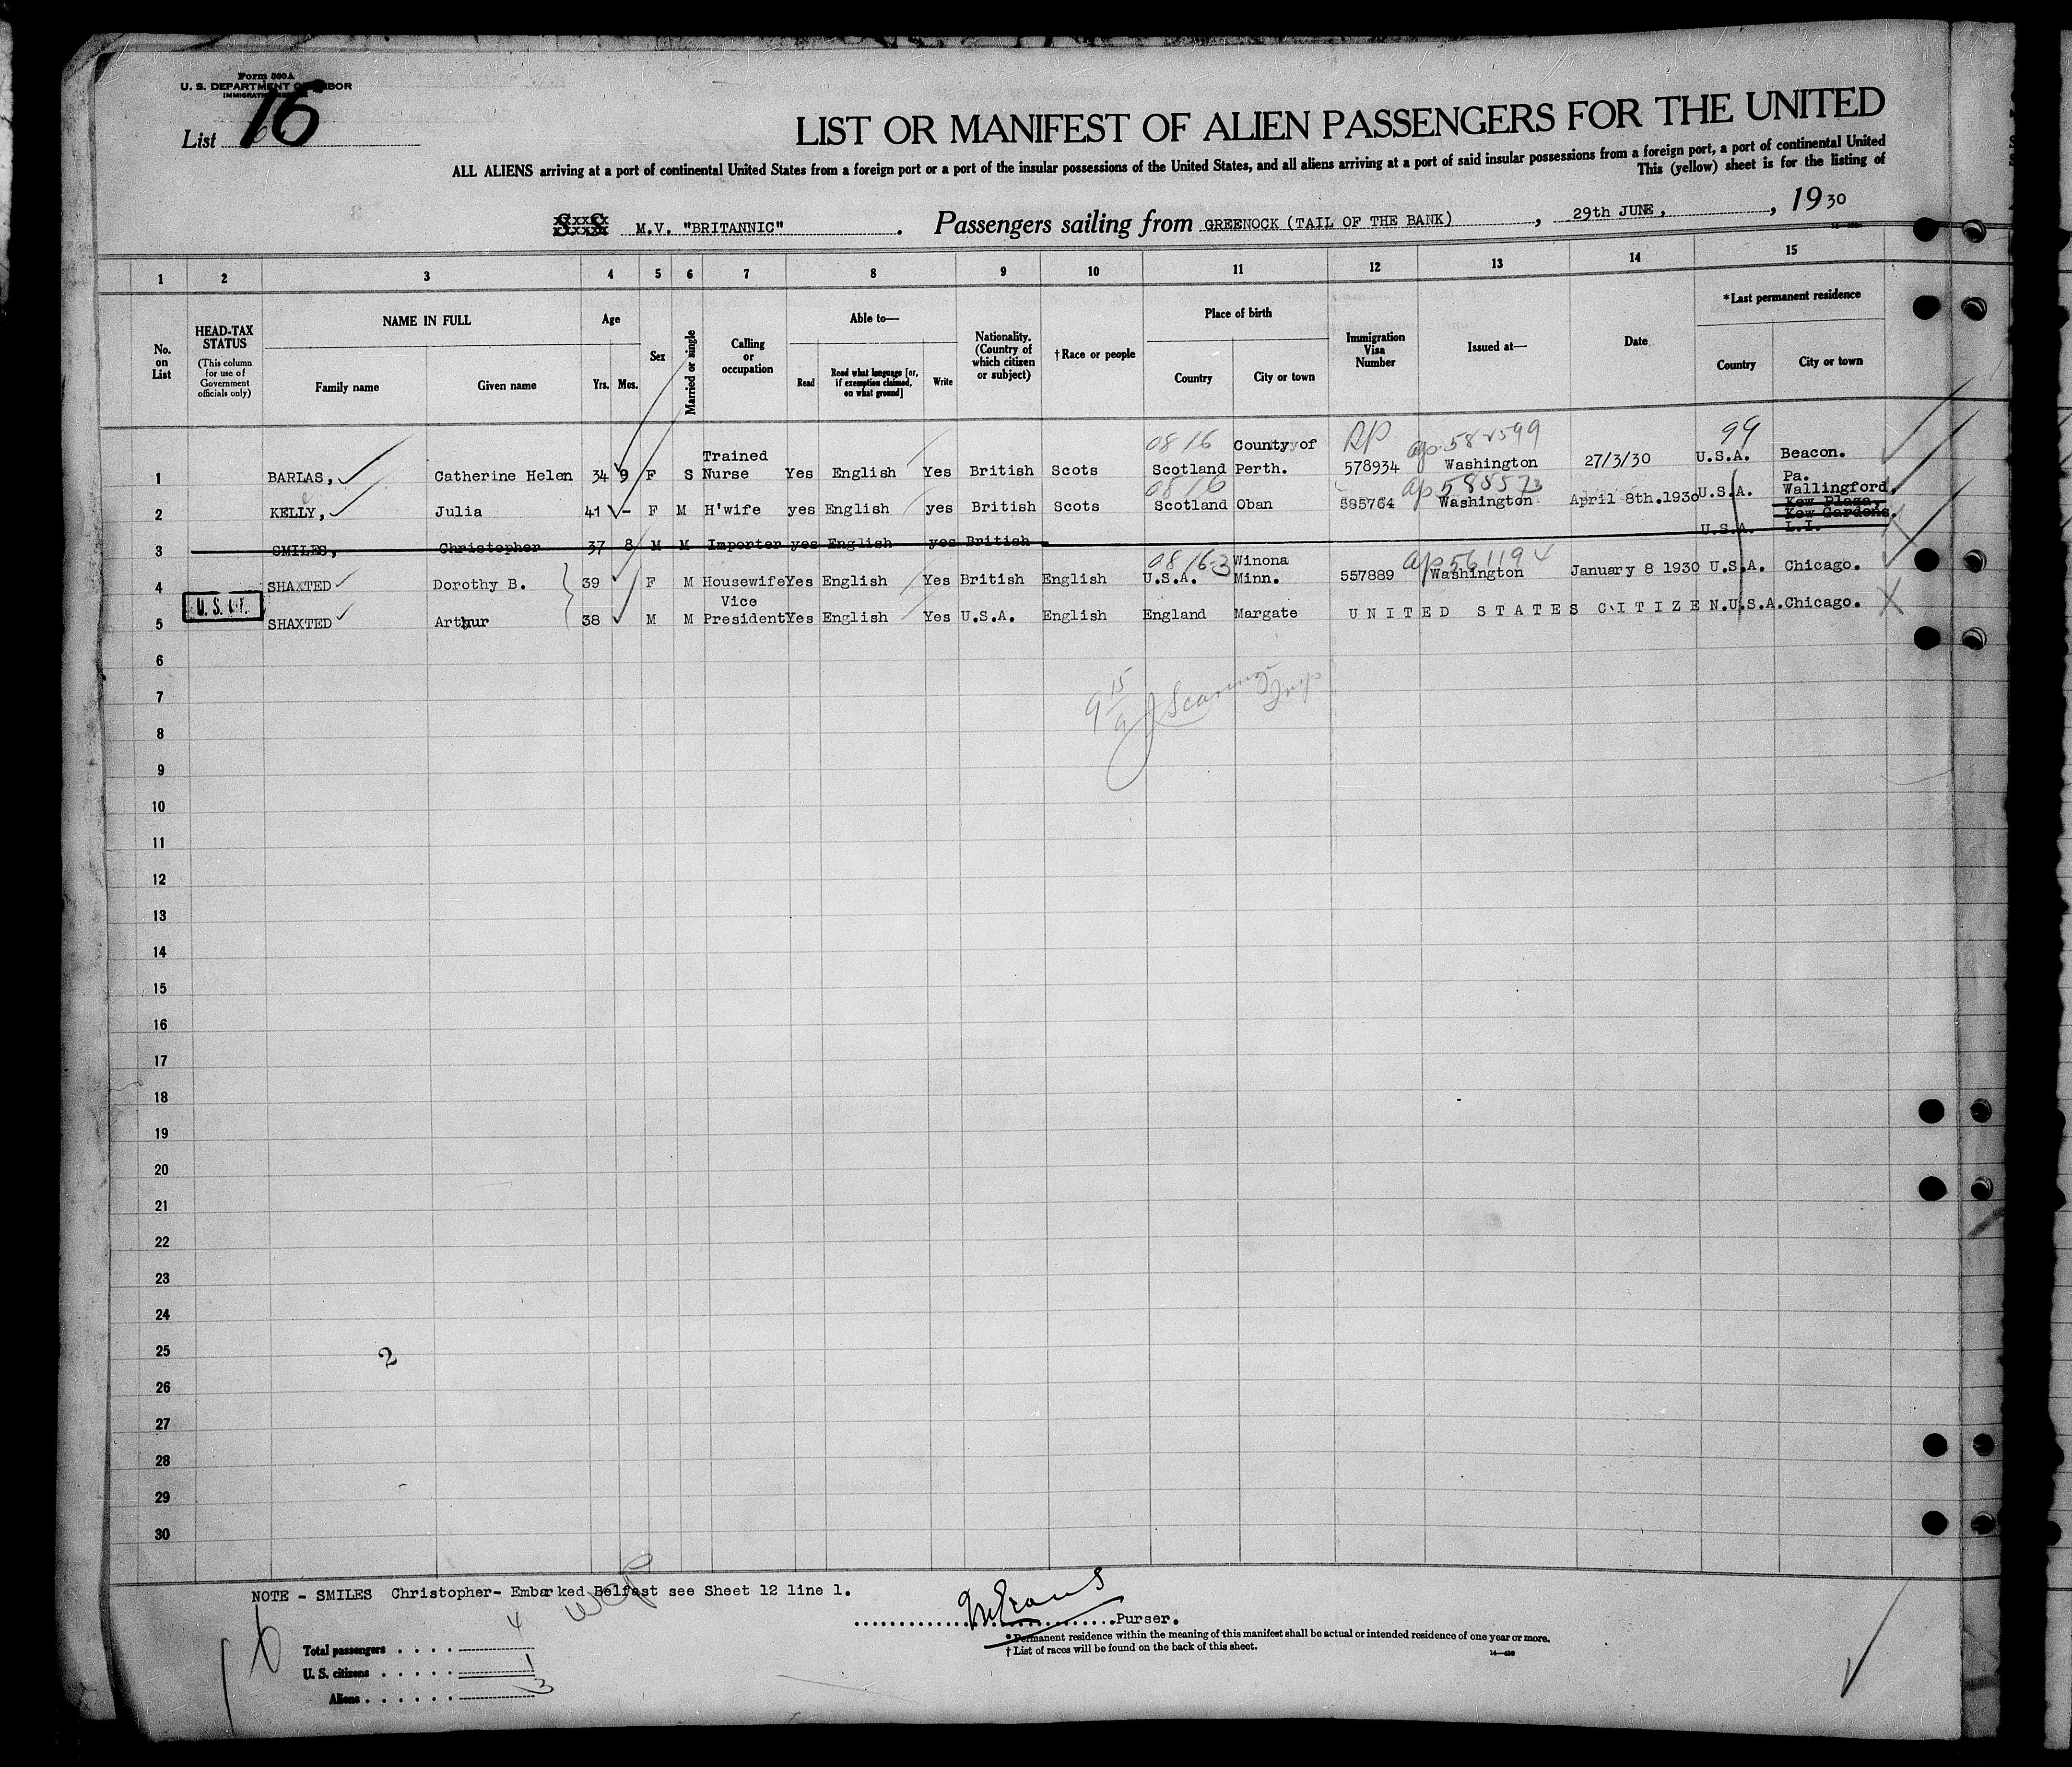 Form 500A
U. S. DEPARTMENT OF LABOR
List 16
LIST OR MANIFEST OF ALIEN PASSENGERS FOR THE UNITED
ALL ALIENS arriving at a port of continental United States from a foreign port or a port of the insular possessions of the United States, and all aliens arriving at a port of said insular possessions from a foreign port, a port of continental United
This (yellow) sheet is for the listing of
S. S. M.V. "BRITANNIC" . Passengers sailing from GREENOCK (TAIL OF THE BANK) , 29th JUNE, , 1930
1 2 3 4 5 6 7 8 9 10 11 12 13 14 15
No. on List
HEAD-TAX STATUS
(This column for use of Government officials only)
NAME IN FULL
Family name Given name
Age
Yrs. Mos.
Sex
Married or single
Calling or occupation
Able to—
Read Read what language [or, if exemption claimed, on what ground] Write
Nationality. (Country of which citizen or subject)
†Race or people
Place of birth
Country City or town
Immigration Visa Number
Issued at—
Date
*Last permanent residence
Country City or town
1 BARLAS, Catherine Helen 34 9 F S Trained Nurse Yes English Yes British Scots 0816 Scotland County of Perth. RP 578934 ap 582599 Washington 27/3/30 99 U.S.A. Beacon.
2 KELLY, Julia 41 - F M H'wife yes English yes British Scots 0816 Scotland Oban 585764 ap 588573 Washington April 8th.1930 U.S.A. Pa. Wallingford,
3 SMILES, Christopher 37 8 M M Importer yes English yes British U.S.A. Kew Plaza, Kew Gardens. L.I.
4 SHAXTED Dorothy B. 39 F M Housewife Yes English Yes British English 0816-3 U.S.A. Winona Minn. 557889 ap 561194 Washington January 8 1930 U.S.A. Chicago.
U. S. CIT.
5 SHAXTED Arthur 38 M M Vice President Yes English Yes U.S.A. English England Margate UNITED STATES CITIZEN. U.S.A. Chicago.
6
7
8
9
10
11
12
13
14
15
16
17
18
19
20
21
22
23
24
25
2
26
27
28
29
30
NOTE - SMILES Christopher- Embarked Belfast see Sheet 12 line 1.
Purser.
* Permanent residence within the meaning of this manifest shall be actual or intended residence of one year or more.
† List of races will be found on the back of this sheet.
Total passengers . . . . 4
U. S. citizens . . . . . 1
Aliens . . . . . . 3